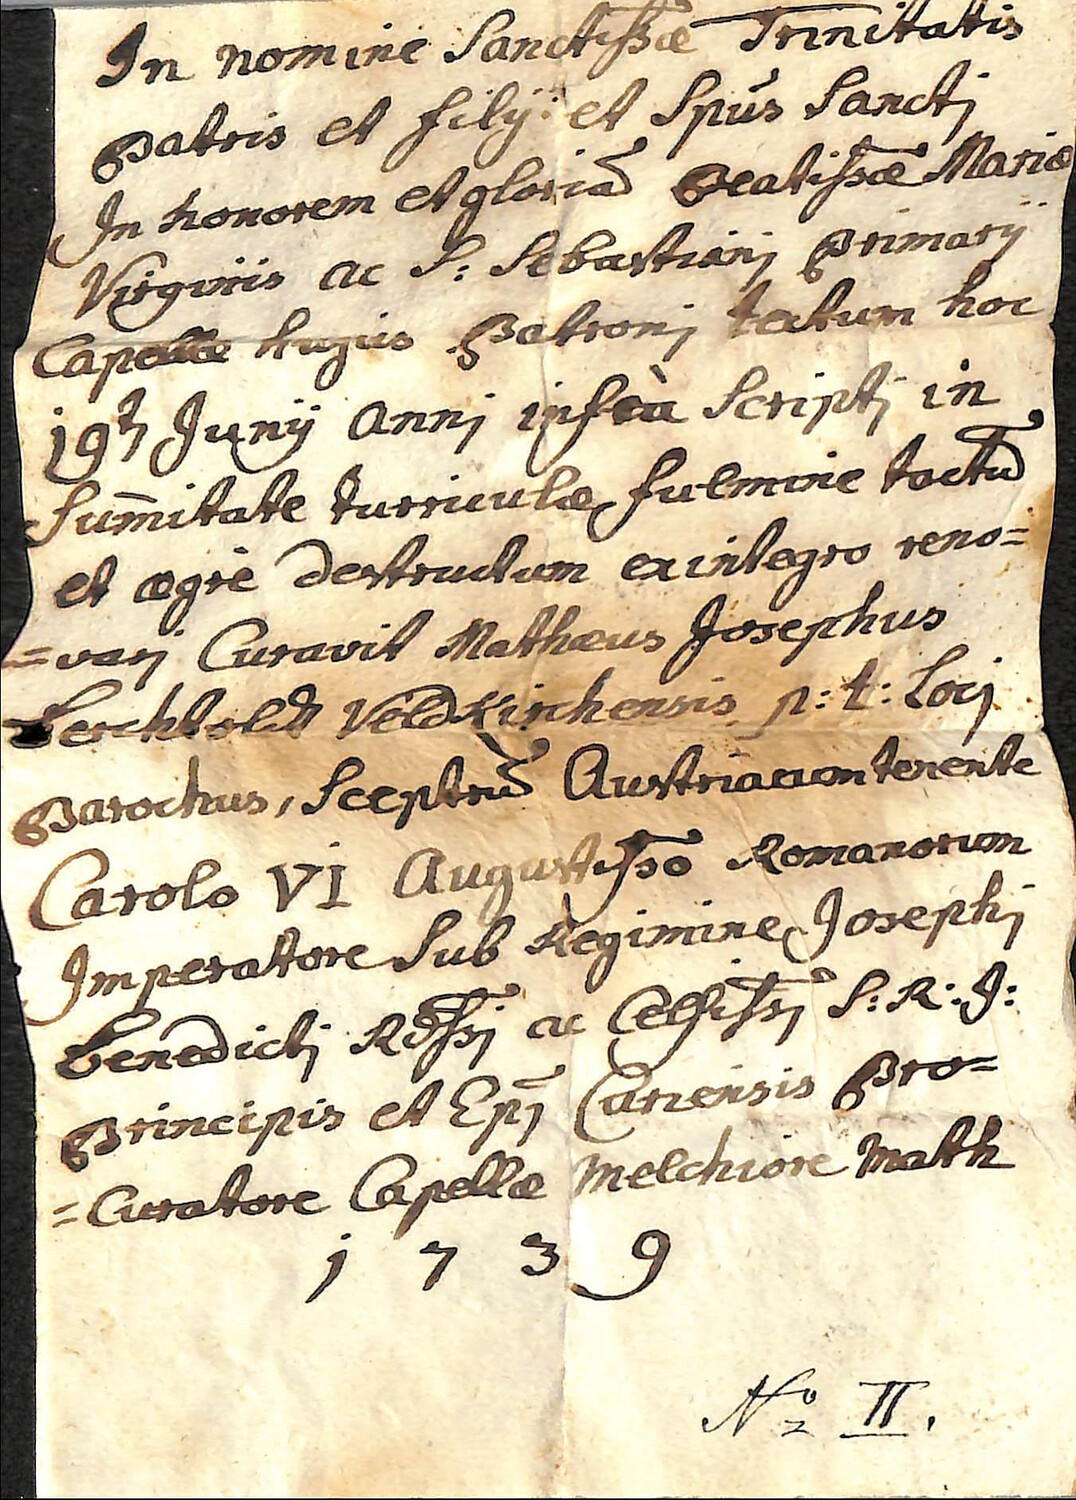 In nomine Sanctissæ Trinitatis
Patris et filÿ et Spūs Sanctj
In honorem et gloriā Beatissæ Mariæ
Virginis ac S: Sebastianj Primarÿ
Capellæ hujus Patronj tectum hoc
19ā Junÿ Annj infrà Scriptj in
Sum̄itate turriculæ fulmine tactū
et ægrè destructum ex integro reno=
=varj Curavit Mathæus Josephus
Berchtoldt Veldkirchensis p: t: Locj
Parochus, Sceptrū Austriacum tenente
Carolo VI Augustisso Romanorum
Imperatore Sub Regimine Josephj
Benedictj Rdssj ac Celsissj S: R: I:
Principis et Epj Curiensis Pro=
=Curatore Capellæ Melchiore Math
1739
No II.